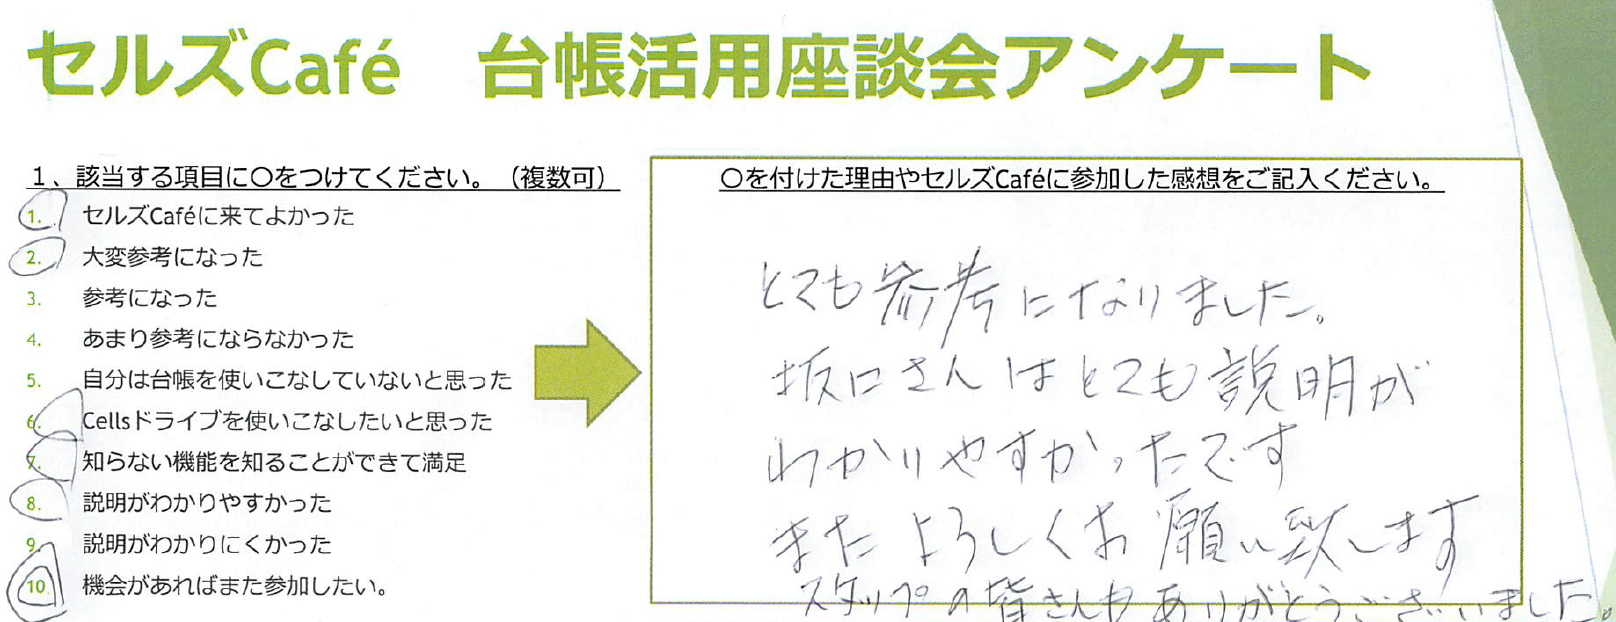 セルズCafé 台帳活用座談会アンケート
1、該当する項目に〇をつけてください。（複数可）
1. セルズCaféに来てよかった
2. 大変参考になった
3. 参考になった
4. あまり参考にならなかった
5. 自分は台帳を使いこなしていないと思った
6. Cellsドライブを使いこなしたいと思った
7. 知らない機能を知ることができて満足
8. 説明がわかりやすかった
9. 説明がわかりにくかった
10. 機会があればまた参加したい。
〇を付けた理由やセルズCaféに参加した感想をご記入ください。
とても参考になりました。
坂口さんはとても説明が
わかりやすかったです
またよろしくお願い致します
スタッフの皆さんもありがとうございました。